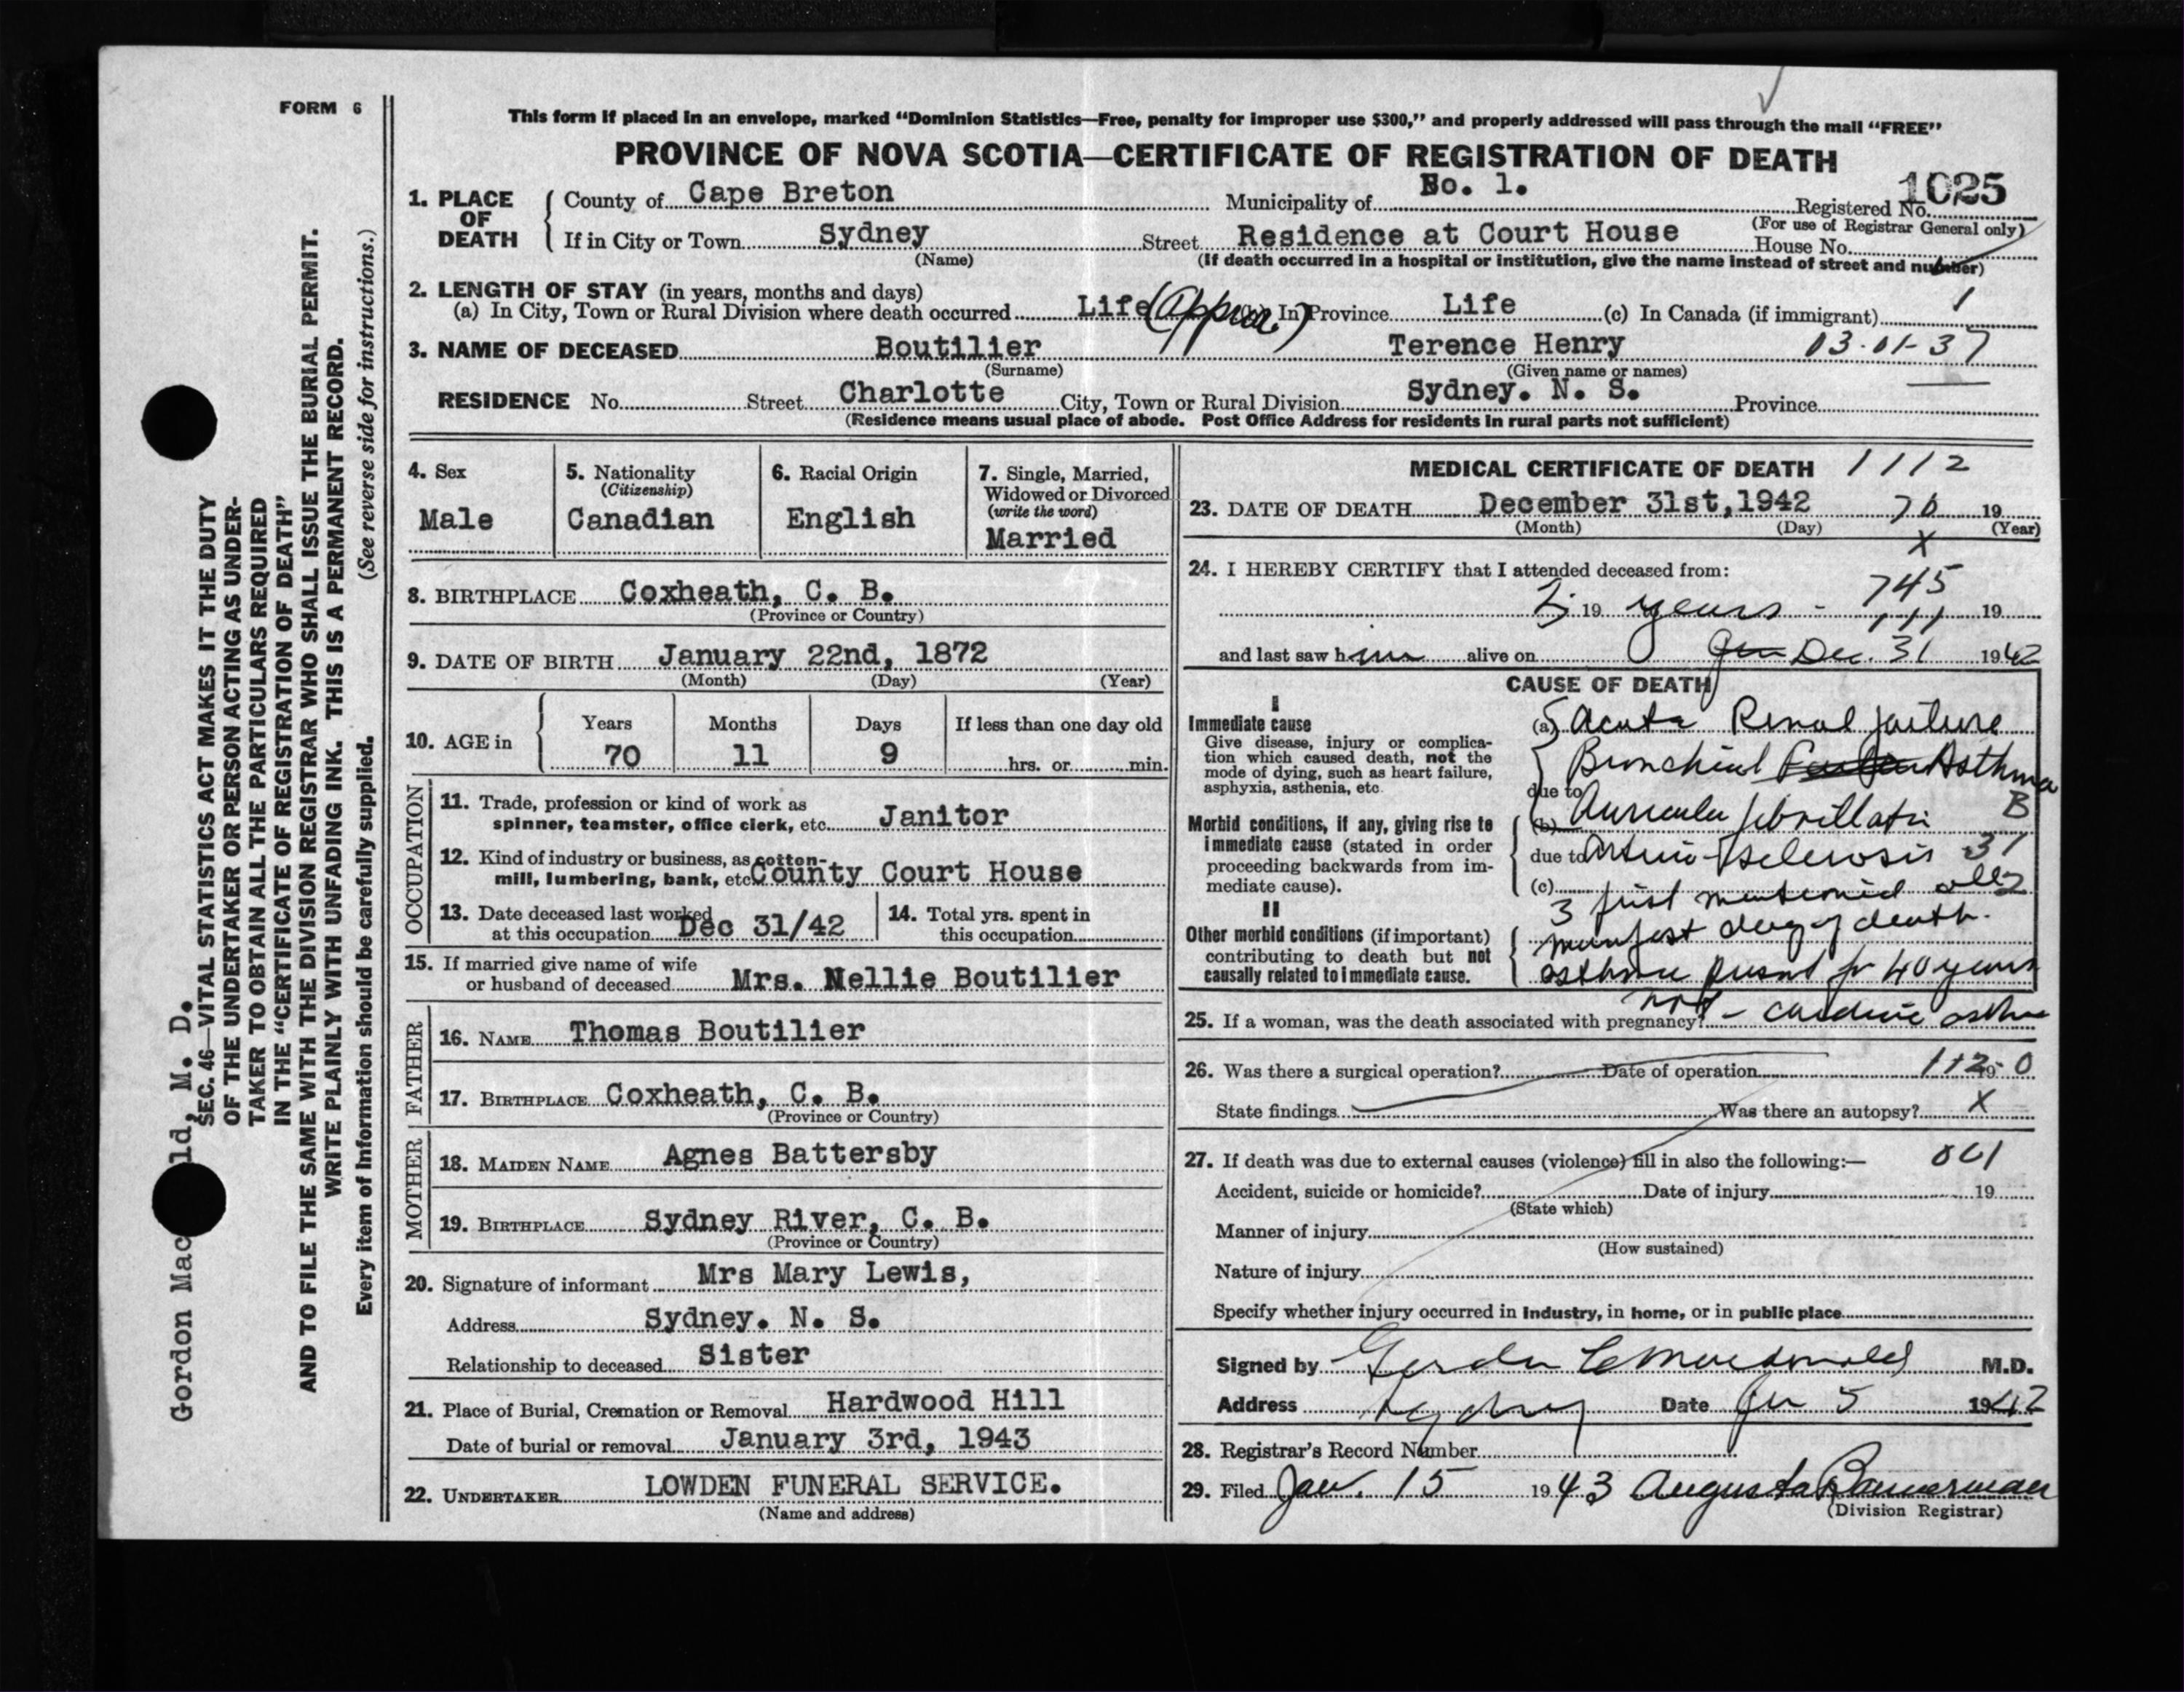 FORM 6
This form if placed in an envelope, marked "Dominion Statistics—Free, penalty for improper use $300," and properly addressed will pass through the mail "FREE"
PROVINCE OF NOVA SCOTIA—CERTIFICATE OF REGISTRATION OF DEATH
1. PLACE OF DEATH County of Cape Breton Municipality of No. 1. Registered No. 1025
(For use of Registrar General only)
If in City or Town Sydney Street Residence at Court House House No.
(Name) (If death occurred in a hospital or institution, give the name instead of street and number)
2. LENGTH OF STAY (in years, months and days)
(a) In City, Town or Rural Division where death occurred Life (Approx.) In Province Life (c) In Canada (if immigrant) 1
3. NAME OF DECEASED Boutilier Terence Henry 03-01-37
(Surname) (Given name or names)
RESIDENCE No. Street Charlotte City, Town or Rural Division Sydney. N. S. Province
(Residence means usual place of abode. Post Office Address for residents in rural parts not sufficient)
4. Sex
Male
5. Nationality
(Citizenship)
Canadian
6. Racial Origin
English
7. Single, Married,
Widowed or Divorced
(write the word)
Married
8. BIRTHPLACE Coxheath, C. B.
(Province or Country)
9. DATE OF BIRTH January 22nd, 1872
(Month) (Day) (Year)
10. AGE in Years Months Days If less than one day old
70 11 9 hrs. or min.
OCCUPATION
11. Trade, profession or kind of work as
spinner, teamster, office clerk, etc. Janitor
12. Kind of industry or business, as cotton-
mill, lumbering, bank, etc. County Court House
13. Date deceased last worked
at this occupation Dec 31/42
14. Total yrs. spent in
this occupation
15. If married give name of wife
or husband of deceased Mrs. Nellie Boutilier
FATHER
16. NAME Thomas Boutilier
17. BIRTHPLACE Coxheath, C. B.
(Province or Country)
MOTHER
18. MAIDEN NAME Agnes Battersby
19. BIRTHPLACE Sydney River, C. B.
(Province or Country)
20. Signature of informant Mrs Mary Lewis,
Address Sydney. N. S.
Relationship to deceased Sister
21. Place of Burial, Cremation or Removal Hardwood Hill
Date of burial or removal January 3rd, 1943
22. UNDERTAKER LOWDEN FUNERAL SERVICE.
(Name and address)
MEDICAL CERTIFICATE OF DEATH 1112
23. DATE OF DEATH December 31st, 1942 70 19
(Month) (Day) (Year)
X
24. I HEREBY CERTIFY that I attended deceased from:
745
19 years - 19
and last saw him alive on Jan Dec. 31 1942
CAUSE OF DEATH
I
Immediate cause
Give disease, injury or complica-
tion which caused death, not the
mode of dying, such as heart failure,
asphyxia, asthenia, etc.
(a) Acute Renal failure
Bronchial Asthma
due to
(b) Auricular fibrillation B
due to Arterio-sclerosis 31
(c)
3 first mentioned all
manifest day of death.
asthma present for 40 years
not - cardiac asthma
Morbid conditions, if any, giving rise to
immediate cause (stated in order
proceeding backwards from im-
mediate cause).
II
Other morbid conditions (if important)
contributing to death but not
causally related to immediate cause.
25. If a woman, was the death associated with pregnancy?
26. Was there a surgical operation? Date of operation 112-0 19
State findings Was there an autopsy? X
27. If death was due to external causes (violence) fill in also the following:—
Accident, suicide or homicide? Date of injury 19
(State which)
Manner of injury
(How sustained)
Nature of injury
Specify whether injury occurred in industry, in home, or in public place
Signed by Gordon C Macdonald M.D.
Address Sydney Date Jan 5 1942
28. Registrar's Record Number
29. Filed Jan. 15 1943 Augusta Bannerman
(Division Registrar)
Gordon Mac ld, M. D.
SEC. 46—VITAL STATISTICS ACT MAKES IT THE DUTY
OF THE UNDERTAKER OR PERSON ACTING AS UNDER-
TAKER TO OBTAIN ALL THE PARTICULARS REQUIRED
IN THE "CERTIFICATE OF REGISTRATION OF DEATH"
AND TO FILE THE SAME WITH THE DIVISION REGISTRAR WHO SHALL ISSUE THE BURIAL PERMIT.
WRITE PLAINLY WITH UNFADING INK. THIS IS A PERMANENT RECORD.
Every item of Information should be carefully supplied. (See reverse side for instructions.)